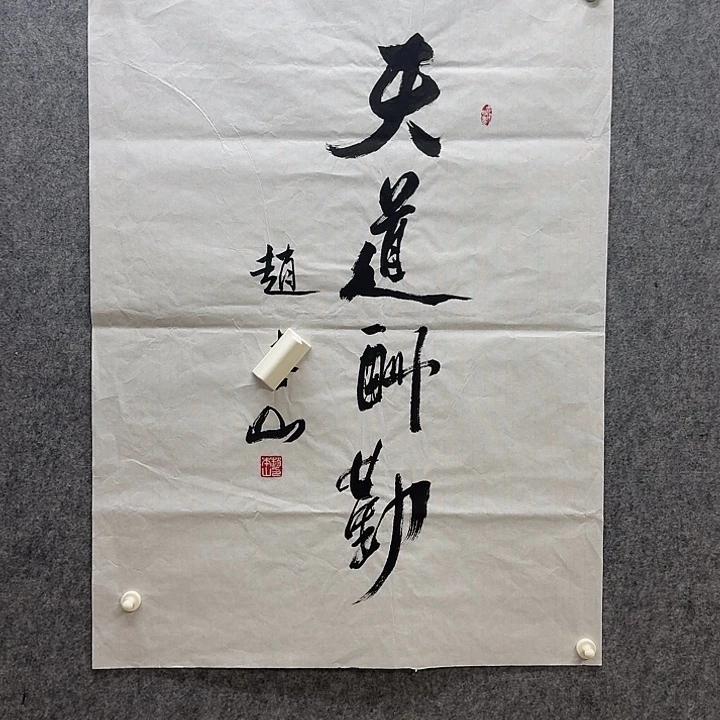 天道酬勤
趙
山